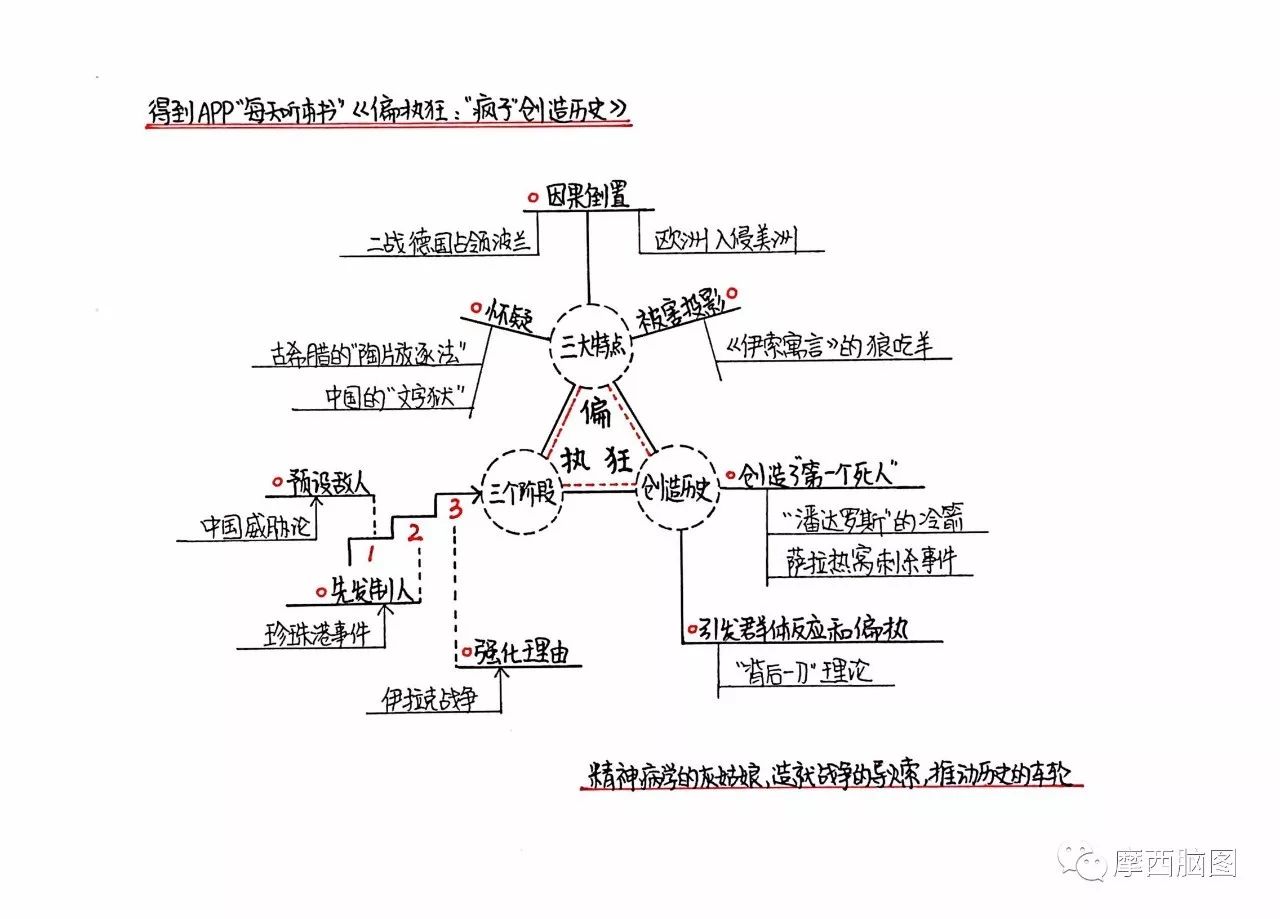 得到APP"每天听本书"《偏执狂："疯子"创造历史》
因果倒置
二战德国占领波兰
欧洲入侵美洲
怀疑
被害投影
三大特点
古希腊的"陶片放逐法"
中国的"文字狱"
《伊索寓言》的狼吃羊
偏
执狂
三个阶段
创造历史
预设敌人
中国威胁论
1
2
3
先发制人
珍珠港事件
强化理由
伊拉克战争
创造了"第一个死人"
"潘达罗斯"的冷箭
萨拉热窝刺杀事件
引发群体反应和偏执
"背后一刀"理论
精神病学的灰姑娘、造就战争的导火索，推动历史的车轮
摩西脑图